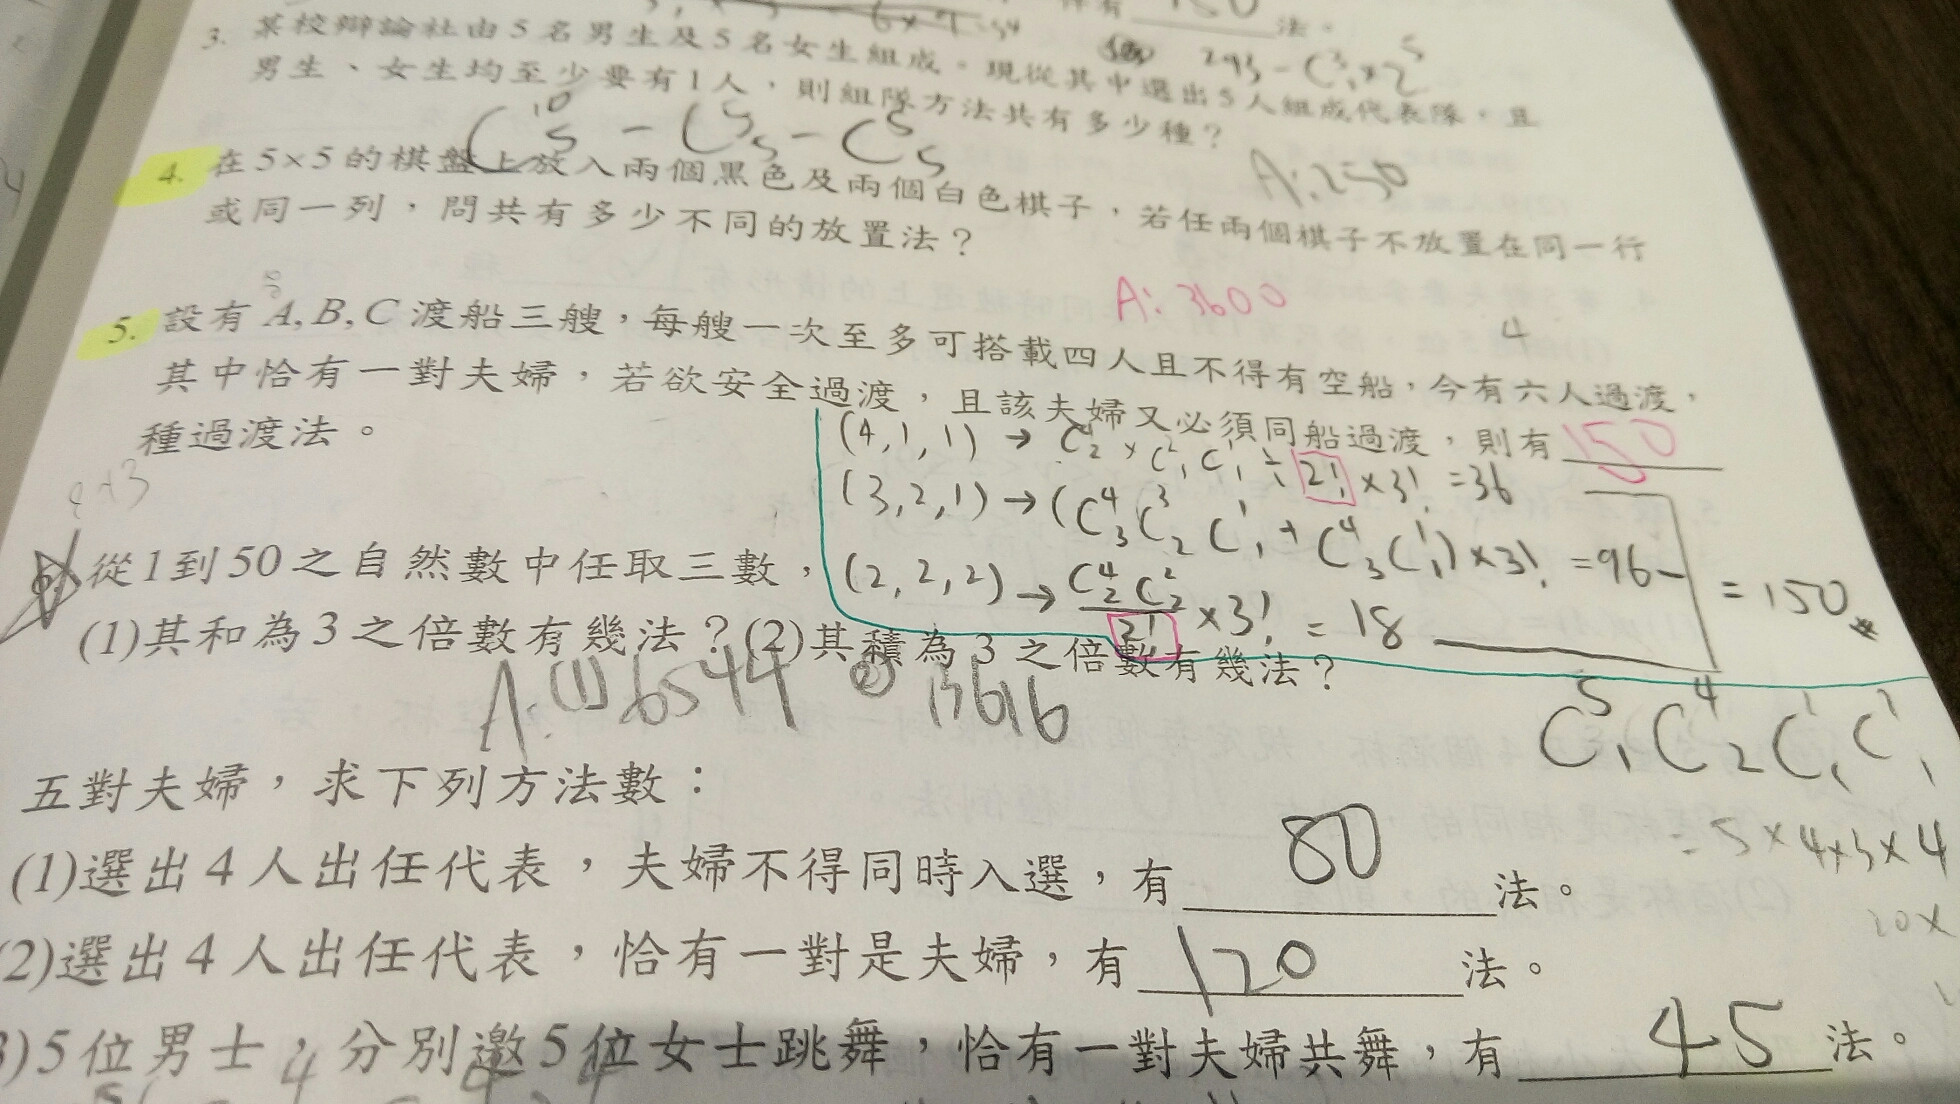 6×9=54
150
法。
3. 某校辯論社由5名男生及5名女生組成。現從其中選出5人組成代表隊,且
男生、女生均至少要有1人,則組隊方法共有多少種?
C¹⁰₅ - C⁵₅ - C⁵₅
A:250
4. 在5×5的棋盤上放入兩個黑色及兩個白色棋子,若任兩個棋子不放置在同一行
或同一列,問共有多少不同的放置法?
A:3600
5. 設有A,B,C渡船三艘,每艘一次至多可搭載四人且不得有空船,今有六人過渡,
其中恰有一對夫婦,若欲安全過渡,且該夫婦又必須同船過渡,則有 150
種過渡法。
(4,1,1) → C⁴₂ × C²₁ C¹₁ ÷ 2! × 3! = 36
(3,2,1) → (C⁴₃ C³₂ C¹₁ + C⁴₃ C¹₁) × 3! = 96
(2,2,2) → C⁴₂ C²₂ / 2! × 3! = 18
= 150
從1到50之自然數中任取三數,
(1)其和為3之倍數有幾法?(2)其積為3之倍數有幾法?
A:(1)6544 ② 13616
C⁵₁ C⁴₂ C¹₁ C¹₁
= 5×4×3×4
五對夫婦,求下列方法數:
(1)選出4人出任代表,夫婦不得同時入選,有 80 法。
(2)選出4人出任代表,恰有一對是夫婦,有 120 法。
3)5位男士,分別邀5位女士跳舞,恰有一對夫婦共舞,有 45 法。